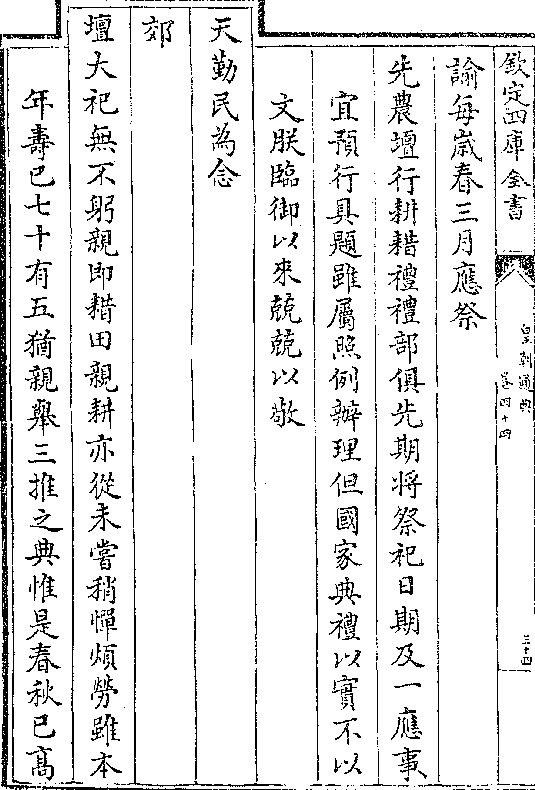 欽定四庫全書
皇朝通典
卷四十四
三十四
諭每歲春三月應祭
先農壇行耕耤禮禮部俱先期將祭祀日期及一應事
宜預行具題雖屬照例辦理但國家典禮以實不以
文朕臨御以來兢兢以敬
天勤民為念
郊
壇大祀無不躬親即耤田親耕亦從未嘗稍憚煩勞雖本
年壽已七十有五猶親舉三推之典惟是春秋已高